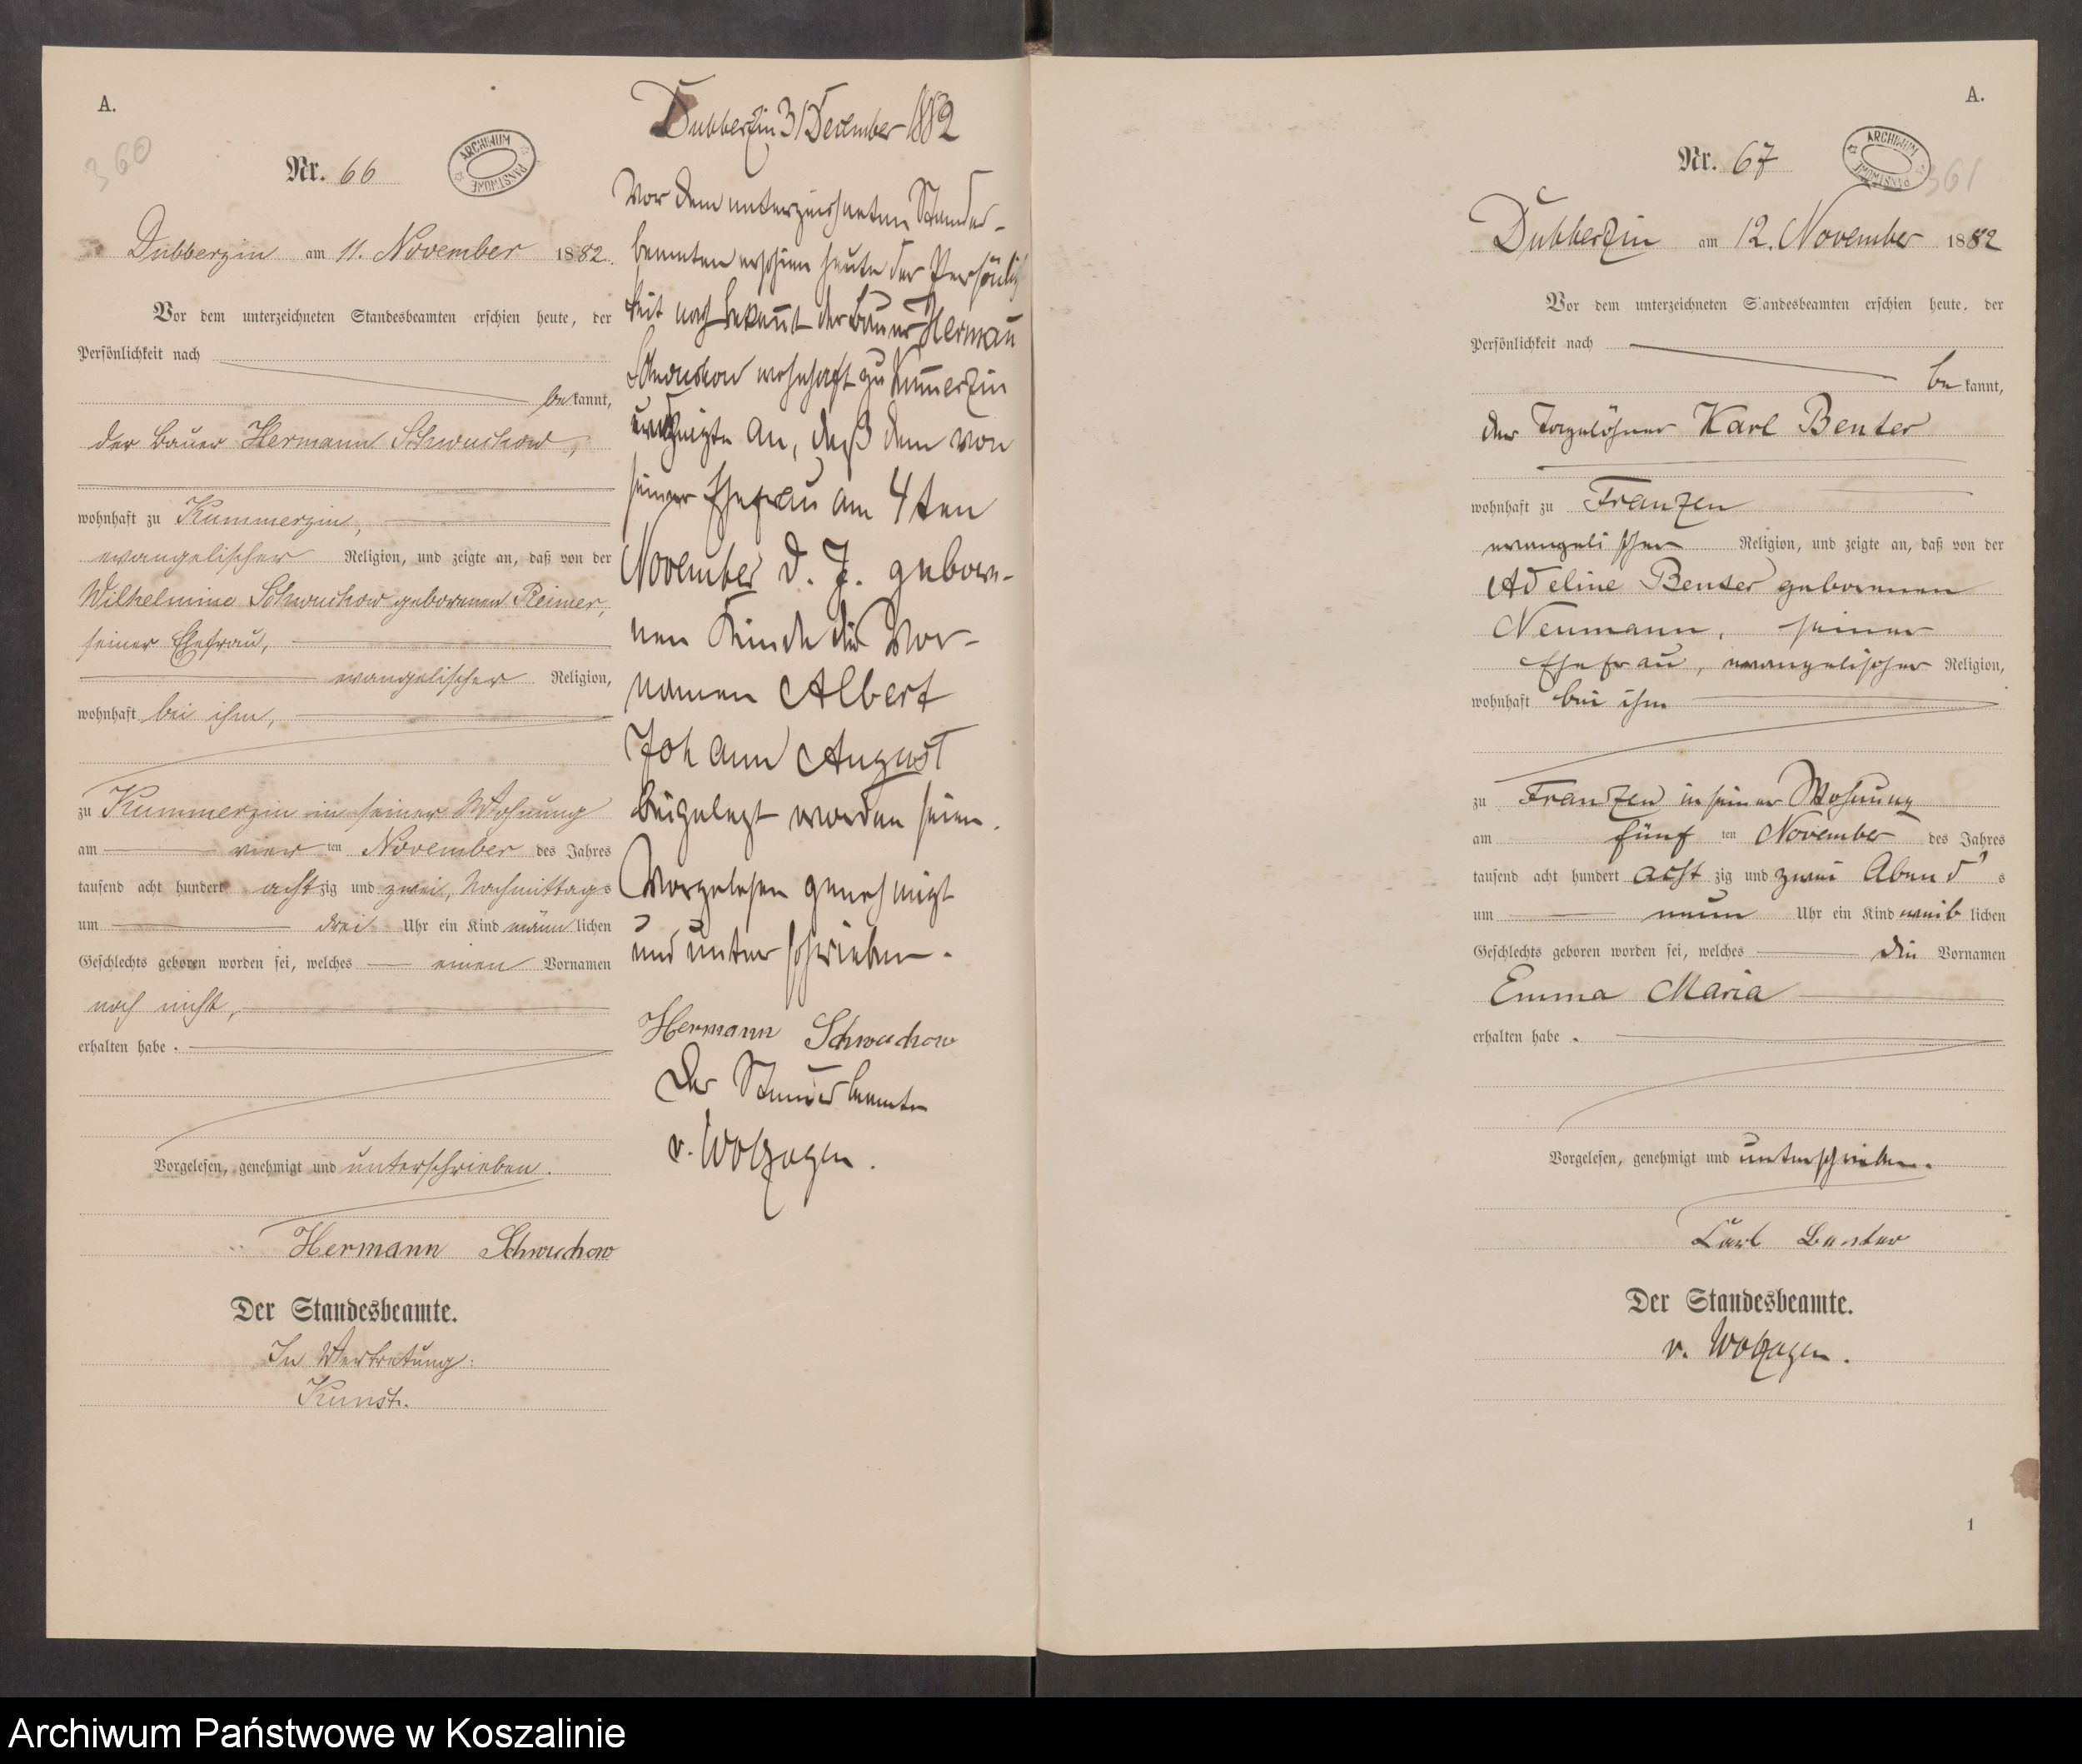 A.
360
Nr. 66
ARCHIWUM PAŃSTWOWE
Dubberzin am 11. November 1882.
Vor dem unterzeichneten Standesbeamten erschien heute, der
Persönlichkeit nach
bekannt,
der Bauer Hermann Schwuchow,
wohnhaft zu Kummerzin,
evangelischer Religion, und zeigte an, daß von der
Wilhelmine Schwuchow geborenen Reimer,
seiner Ehefrau,
evangelischer Religion,
wohnhaft bei ihm,
zu Kummerzin in seiner Wohnung
am vier ten November des Jahres
tausend acht hundert acht zig und zwei, Nachmittags
um drei Uhr ein Kind männlichen
Geschlechts geboren worden sei, welches einen Vornamen
noch nicht,
erhalten habe.
Vorgelesen, genehmigt und unterschrieben.
Hermann Schwuchow
Der Standesbeamte.
In Vertretung:
Kunst.
Dubberzin 31 December 1882
Vor dem unterzeichneten Standes-
beamten erschien heute der Persönlich
keit nach bekannt der Bauer Hermann
Schwuchow wohnhaft zu Kummerzin
und zeigte an, daß dem von
seiner Ehefrau am 4ten
November d. J. gebore-
nen Kinde die Vor-
namen Albert
Johann August
beigelegt worden seien.
Vorgelesen genehmigt
und unterschrieben.
Hermann Schwuchow
Der Standesbeamte
v. Wolzogen.
A.
Nr. 67
ARCHIWUM PAŃSTWOWE
361
Dubberzin am 12. November 1882
Vor dem unterzeichneten Standesbeamten erschien heute, der
Persönlichkeit nach
be kannt,
der Tagelöhner Karl Benter
wohnhaft zu Franzen
evangelischer Religion, und zeigte an, daß von der
Adeline Benter geborenen
Neumann, seiner
Ehefrau, evangelischer Religion,
wohnhaft bei ihm
zu Franzen in seiner Wohnung
am fünf ten November des Jahres
tausend acht hundert acht zig und zwei Abend s
um neun Uhr ein Kind weib lichen
Geschlechts geboren worden sei, welches die Vornamen
Emma Maria
erhalten habe.
Vorgelesen, genehmigt und unterschrieben.
Carl Benter
Der Standesbeamte.
v. Wolzogen.
1
Archiwum Państwowe w Koszalinie